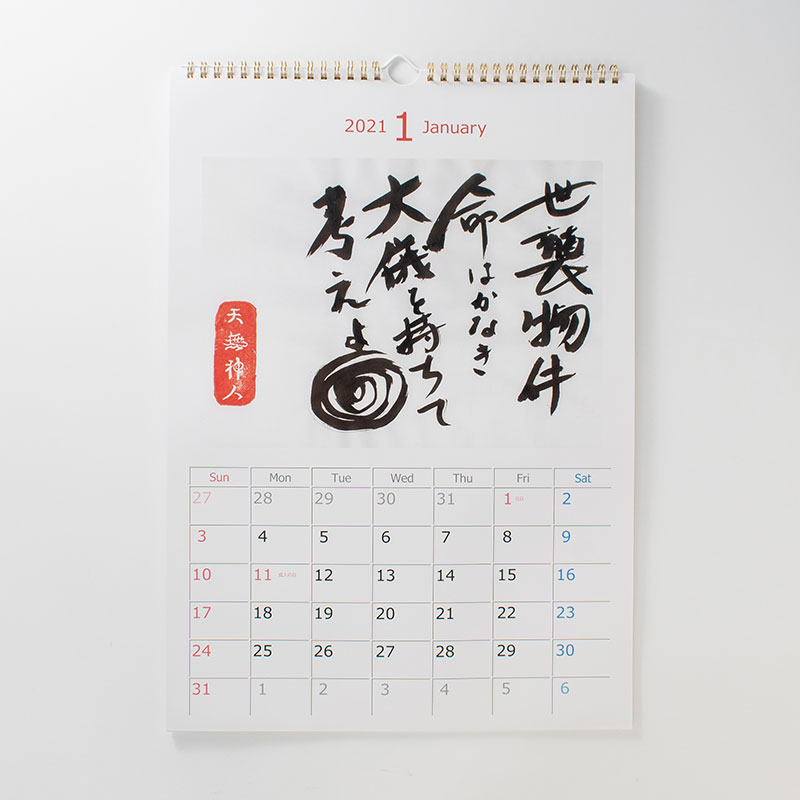 2021 1 January
世襲物件
命はかなき
大儀を持ちて
考えよ
天無神人
Sun Mon Tue Wed Thu Fri Sat
27 28 29 30 31 1 元日 2
3 4 5 6 7 8 9
10 11 成人の日 12 13 14 15 16
17 18 19 20 21 22 23
24 25 26 27 28 29 30
31 1 2 3 4 5 6